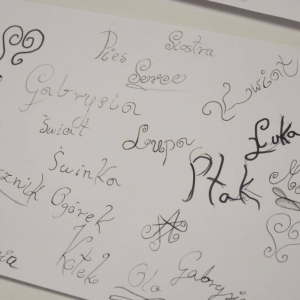 Pies
Siostra
Serce
Kwiat
Gabrysia
Świat
Lupa
Łuka
Świnka
Ptak
Ogórek
Kotek
Ola
Gabrysi